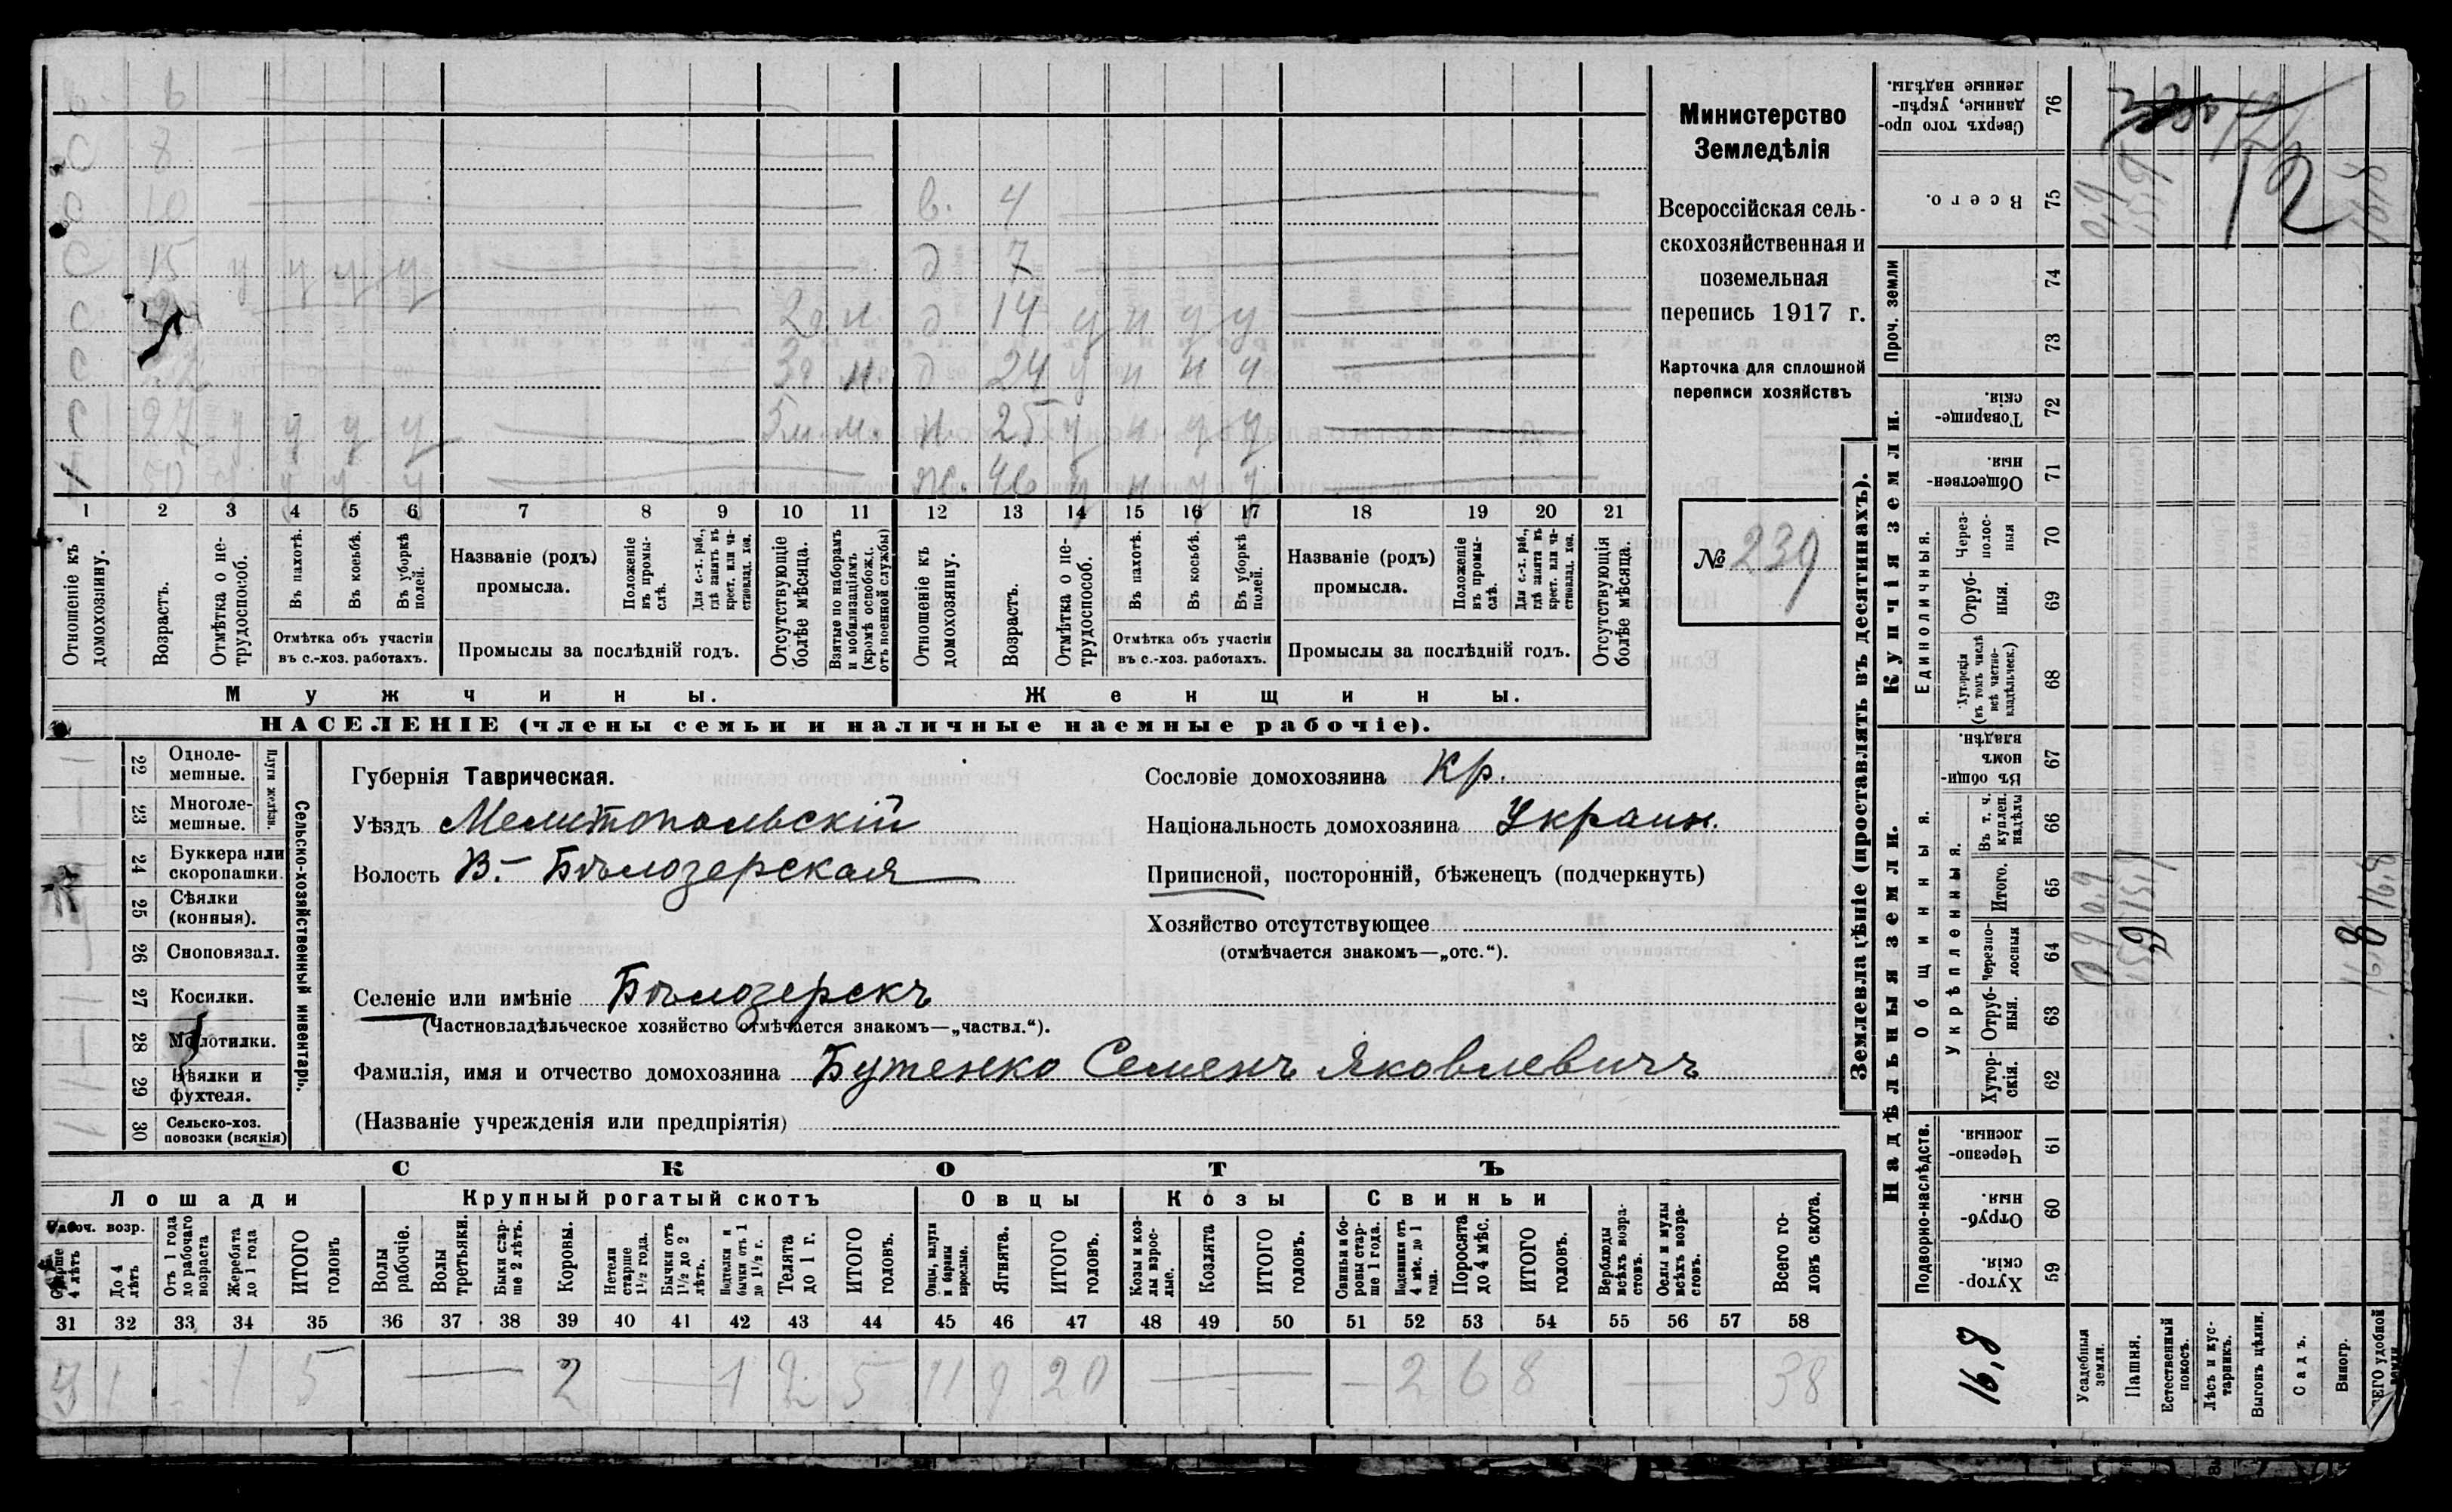 в. 6
С 8
С 10 в. 4
С 15 у у у у д 7
С 2 г. м. д 14 у н у у
С 22 3 г. м. д 24 у н н ч
С 27 у у у у 5 м. м. н 25 у н у у
1 50 у у у у ж. 46 у н у у
1 2 3 4 5 6 7 8 9 10 11 12 13 14 15 16 17 18 19 20 21
Отношеніе къ домохозяину.
Возрастъ.
Отмѣтка о нетрудоспособ.
Въ пахотѣ.
Въ косьбѣ.
Въ уборкѣ полей.
Отмѣтка объ участіи
въ с.-хоз. работахъ.
Названіе (родъ)
промысла.
Положеніе въ промыслѣ.
Для с.-х. раб., гдѣ занятъ въ крест. или частновлад. хоз.
Промыслы за послѣдній годъ.
Отсутствующіе болѣе мѣсяца.
Взятые по наборамъ и мобилизаціямъ (кромѣ освобожд. отъ военной службы)
Отношеніе къ домохозяину.
Возрастъ.
Отмѣтка о нетрудоспособ.
Въ пахотѣ.
Въ косьбѣ.
Въ уборкѣ полей.
Отмѣтка объ участіи
въ с.-хоз. работахъ.
Названіе (родъ)
промысла.
Положеніе въ промыслѣ.
Для с.-х. раб., гдѣ занята въ крест. или частновлад. хоз.
Промыслы за послѣдній годъ.
Отсутствующія болѣе мѣсяца.
Мужчины. Женщины.
НАСЕЛЕНІЕ (члены семьи и наличные наемные рабочіе).
Министерство
Земледѣлія
Всероссійская сель-
скохозяйственная и
поземельная
перепись 1917 г.
Карточка для сплошной
переписи хозяйствъ
№ 239
Сельско-хозяйственный инвентарь.
Плуги желѣзн.
22 Одноле-
мешные.
23 Многоле-
мешные.
24 Буккера или
скоропашки.
25 Сѣялки
(конныя).
26 Сноповязал.
27 Косилки.
28 Молотилки.
29 Вѣялки и
фухтеля.
30 Сельско-хоз.
повозки (всякія)
Губернія Таврическая.
Уѣздъ Мелитопольскій
Волость В.-Бѣлозерская
Селеніе или имѣніе Бѣлозерскъ
(Частновладѣльческое хозяйство отмѣчается знакомъ—„частвл.“).
Фамилія, имя и отчество домохозяина Бутенко Семенъ Яковлевичъ
(Названіе учрежденія или предпріятія)
Сословіе домохозяина Кр.
Національность домохозяина Украин.
Приписной, посторонній, бѣженецъ (подчеркнуть)
Хозяйство отсутствующее
(отмѣчается знакомъ—„отс.“).
СКОТЪ
Лошади Крупный рогатый скотъ Овцы Козы Свиньи
Рабоч. возр.
Старше 4 лѣтъ
До 4 лѣтъ
Отъ 1 года до рабочаго возраста
Жеребята до 1 года
ИТОГО головъ
Волы рабочіе.
Волы третьяки.
Быки старше 2 лѣтъ.
Коровы.
Нетели старше 1½ года.
Бычки отъ 1½ до 2 лѣтъ.
Подтелки и бычки отъ 1 до 1½ г.
Телята до 1 г.
ИТОГО головъ.
Овцы, валухи и бараны взрослые.
Ягнята.
ИТОГО головъ.
Козы и козлы взрослые.
Козлята
ИТОГО головъ.
Свиньи и боровы старше 1 года.
Подсвинки отъ 4 мѣс. до 1 года.
Поросята до 4 мѣс.
ИТОГО головъ.
Верблюды всѣхъ возрастовъ.
Ослы и мулы всѣхъ возрастовъ.
Всего головъ скота.
31 32 33 34 35 36 37 38 39 40 41 42 43 44 45 46 47 48 49 50 51 52 53 54 55 56 57 58
3 1 1 5 — 2 — 1 2 5 11 9 20 — — 2 6 8 — 38
Землевладѣніе (проставлять въ десятинахъ).
Купчія земли.
Надѣльныя земли.
Сверхъ того проданные, укрѣпленные надѣлы. 76
Всего. 75
Проч. земли
74
73
Товарищескія. 72
Общественныя. 71
Единоличныя.
Черезполосныя 70
Отрубныя. 69
Хуторскія (въ томъ числѣ всѣ частновладѣльческ.) 68
Въ общинномъ владѣн. 67
Общинныя.
Укрѣпленныя.
Въ т. ч. куплен. надѣлы 66
Итого. 65
Черезполосныя 64
Отрубныя. 63
Хуторскія. 62
Подворно-наслѣдств.
Черезполосныя. 61
Отрубныя. 60
Хуторскія. 59
12
16,8
Усадебныя земли.
Пашня.
Естественный покосъ.
Лѣсъ и кустарникъ.
Выгонъ цѣлин.
Садъ.
Виногр.